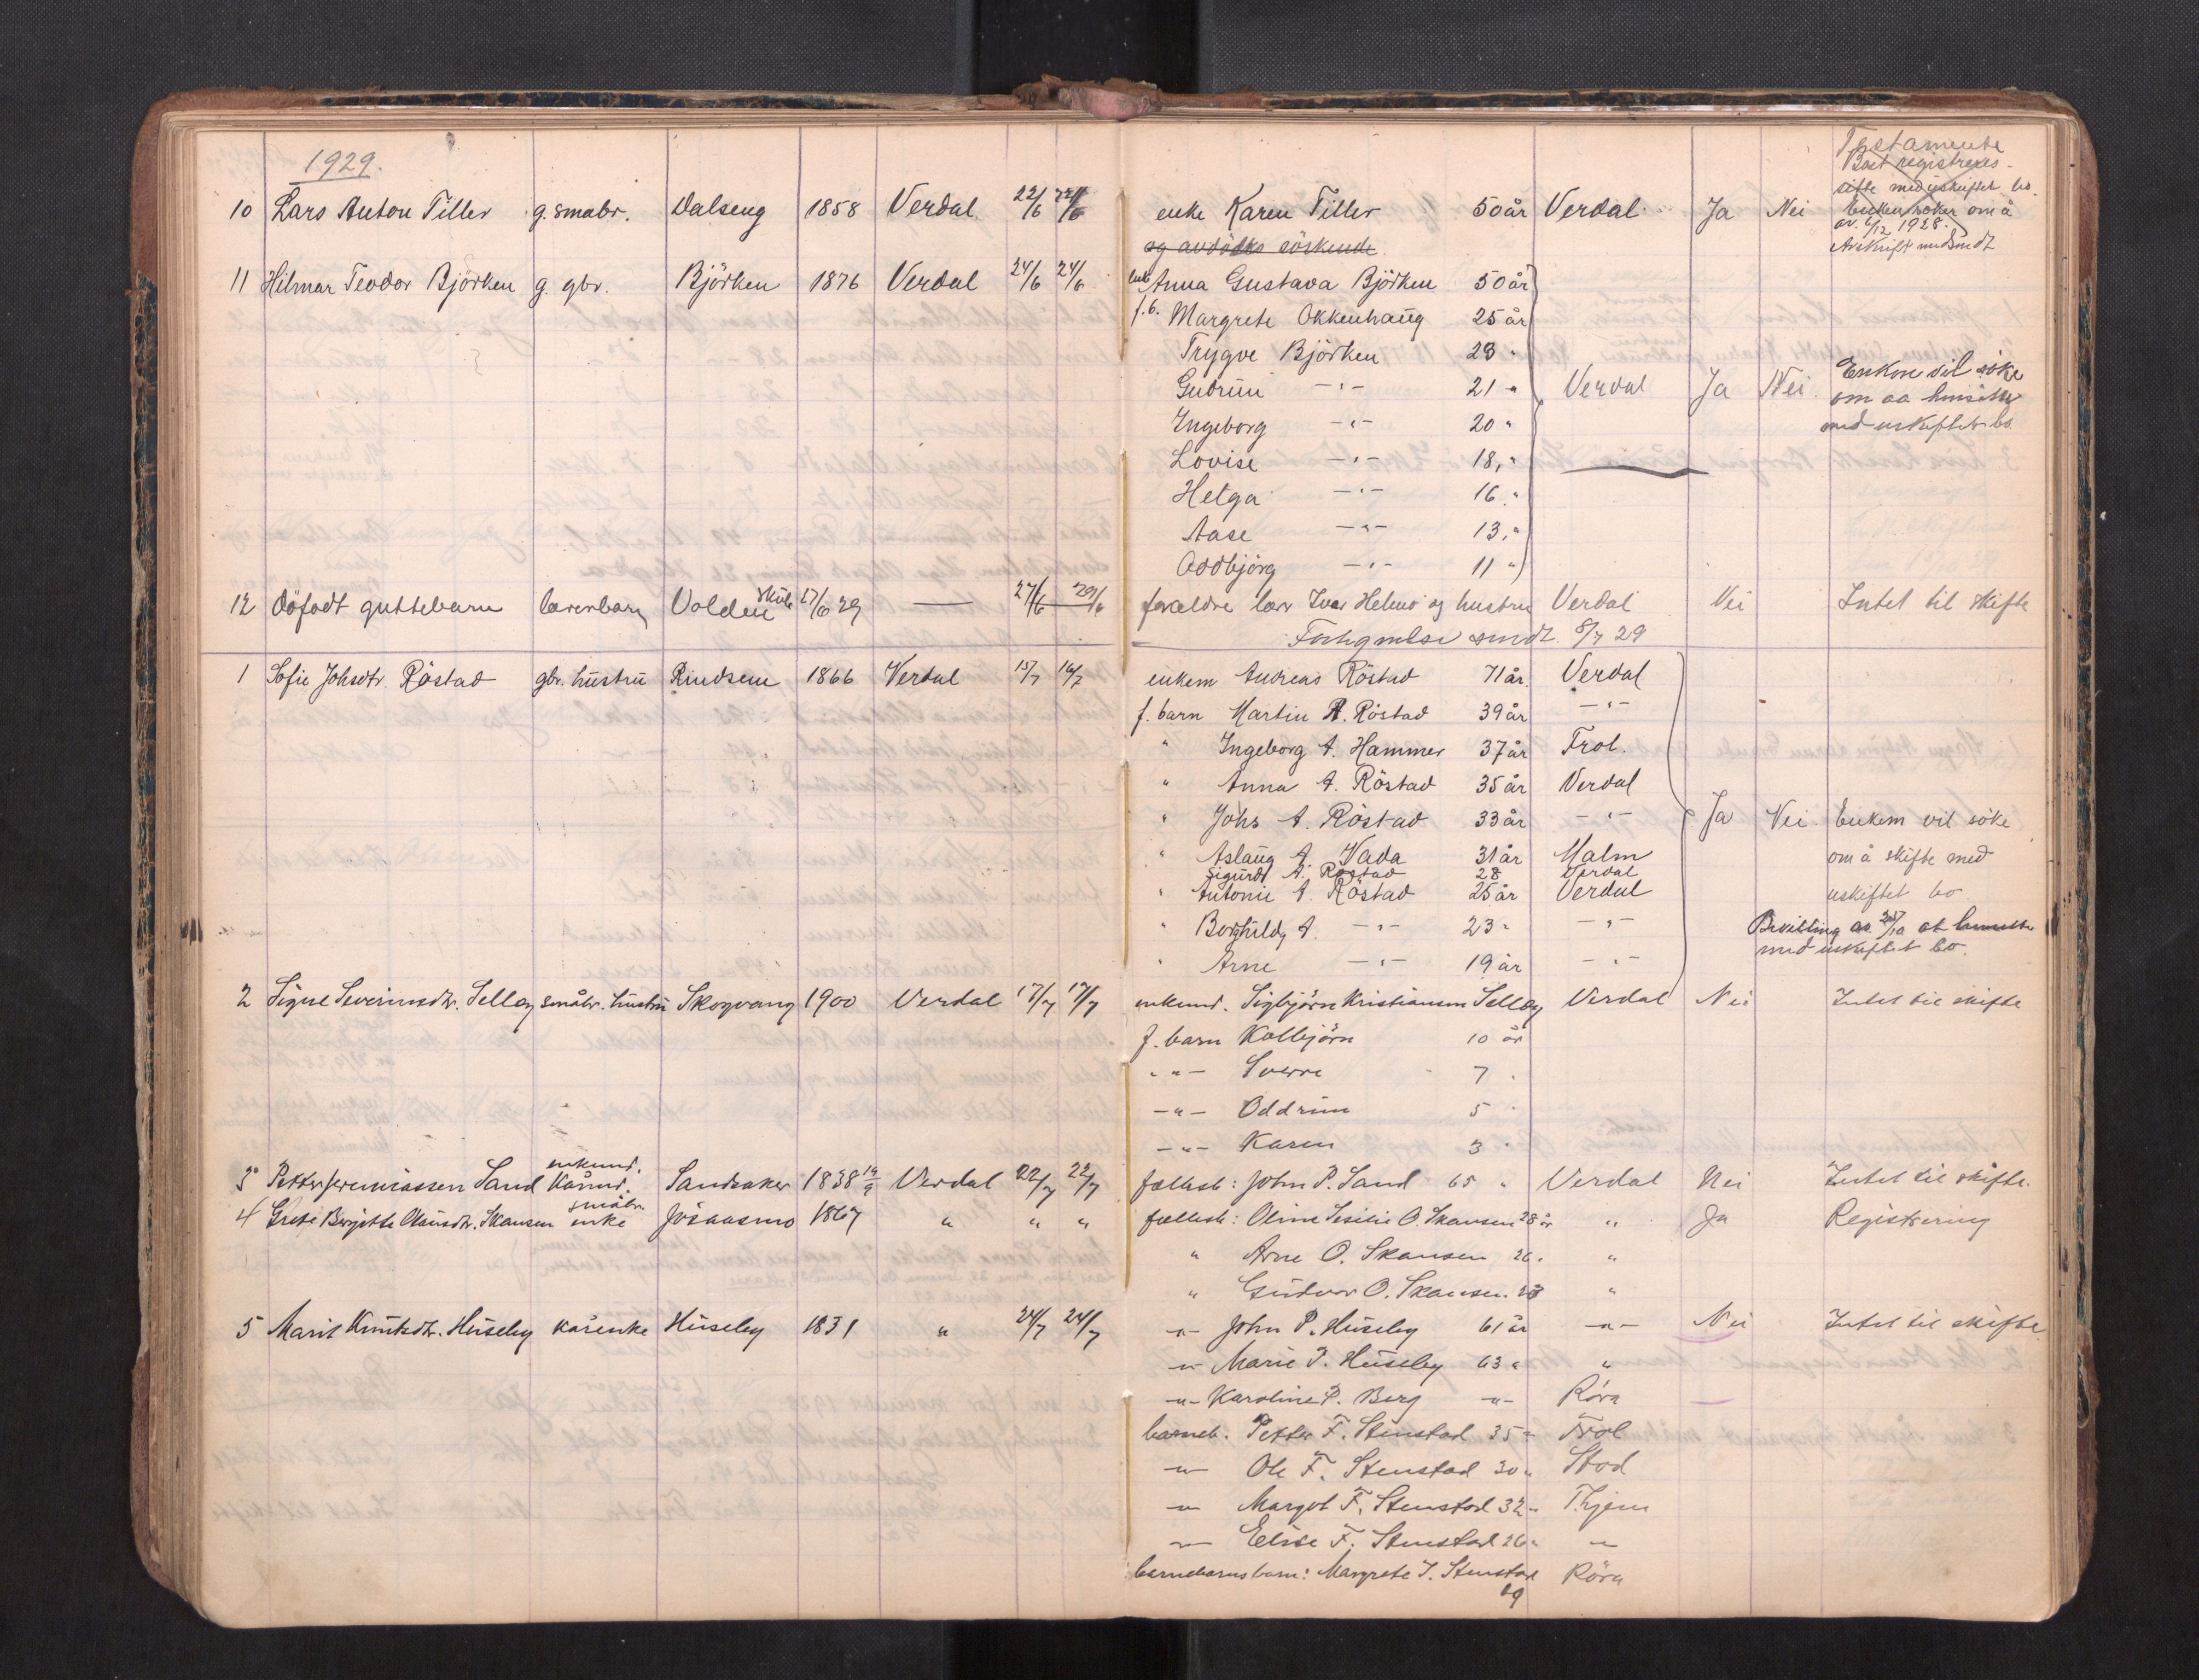 1929.
Testamente
Boet registreres
sitte med uskiftet bo.
Enken søker om å
av 6/12 1928.
Avskrift medsendt
10 Lars Anton Tiller g. småbr. Dalseng 1858 Verdal 22/6 22/6 enke Karen Tiller 50 år Verdal Ja Nei
og avdødes söskende
11 Hilmar Teodor Björken g. gbr. Björken 1876 Verdal 24/6 24/6 enke Anna Gustava Björken 50 år
f.b. Margrete Okkenhaug 25 år
Trygve Björken 23 "
Gudrun -"- 21 " Verdal Ja Nei Enken vil söke
om aa hensitte
Ingeborg -"- 20 " med uskiftet bo
Lovise -"- 18 "
Helga -"- 16 "
Aase -"- 13 "
Oddbjörg -"- 11 "
12 Döfödt guttebarn lærerbarn Volden skole 27/6 29 — 27/6 29/6 forældre lær. Ivar Helmo og hustru Verdal Nei Intet til skifte
sendt 8/7 29
1 Sofie Johsdtr. Röstad gbr. hustru Rindsem 1866 Verdal 15/7 16/7 enkem Andreas Röstad 71 år Verdal
f. barn Martin A. Röstad 39 år -"-
" Ingeborg A. Hammer 37 år Frol.
" Anna A. Röstad 35 år Verdal
" Johs A. Röstad 33 år -"- Ja Nei Enkem vil söke
" Aslaug A. Vada 31 år Malm om å skifte med
Sigurd A. Röstad 28 Verdal
" Antonie A. Röstad 25 år Verdal uskiftet bo
" Borghild A. -"- 23 " -"- Bevilling av /10 at hensitte
med uskiftet bo.
" Arne -"- 19 år -"-
2 Signe Severinsdtr. Selley småbr. hustru Skogvang 1900 Verdal 17/7 17/7 enkemd. Sigbjörn Kristiansen Selley Verdal Nei Intet til skifte
f. barn Kolbjörn 10 år
-"- Sverre 7 "
-"- Oddrun 5 "
-"- Karen 3 "
3 Petter Jeremiassen Sand enkemd. kårmd. Sandsaker 1838 19/9 Verdal 22/7 22/7 fællesb: John P. Sand 65 " Verdal Nei Intet til skifte.
4 Grete Bergitte Olausdtr. Skansen småbr. enke Jösaasmo 1867 " " " fællesb: Oline Sesilie O. Skansen 28 år " Ja Registrering
" Arne O. Skansen 26 " "
" Gudvor O. Skansen 23 "
5 Marit Knutsdtr. Huseby kårenke Huseby 1831 " 24/7 24/7 -"- John P. Huseby 61 år -"- Nei Intet til skifte
-"- Marie P. Huseby 63 " "
-"- Karoline P. Berg -"- Röra
barneb. Petter F. Stenstad 35 " Frol
-"- Ole F. Stenstad 30 " Stod
-"- Margot F. Stenstad 32 " T.hjem
-"- Elise F. Stenstad 26 " -"-
barnebarnsbarn: Margrete I. Stenstad Röra
19